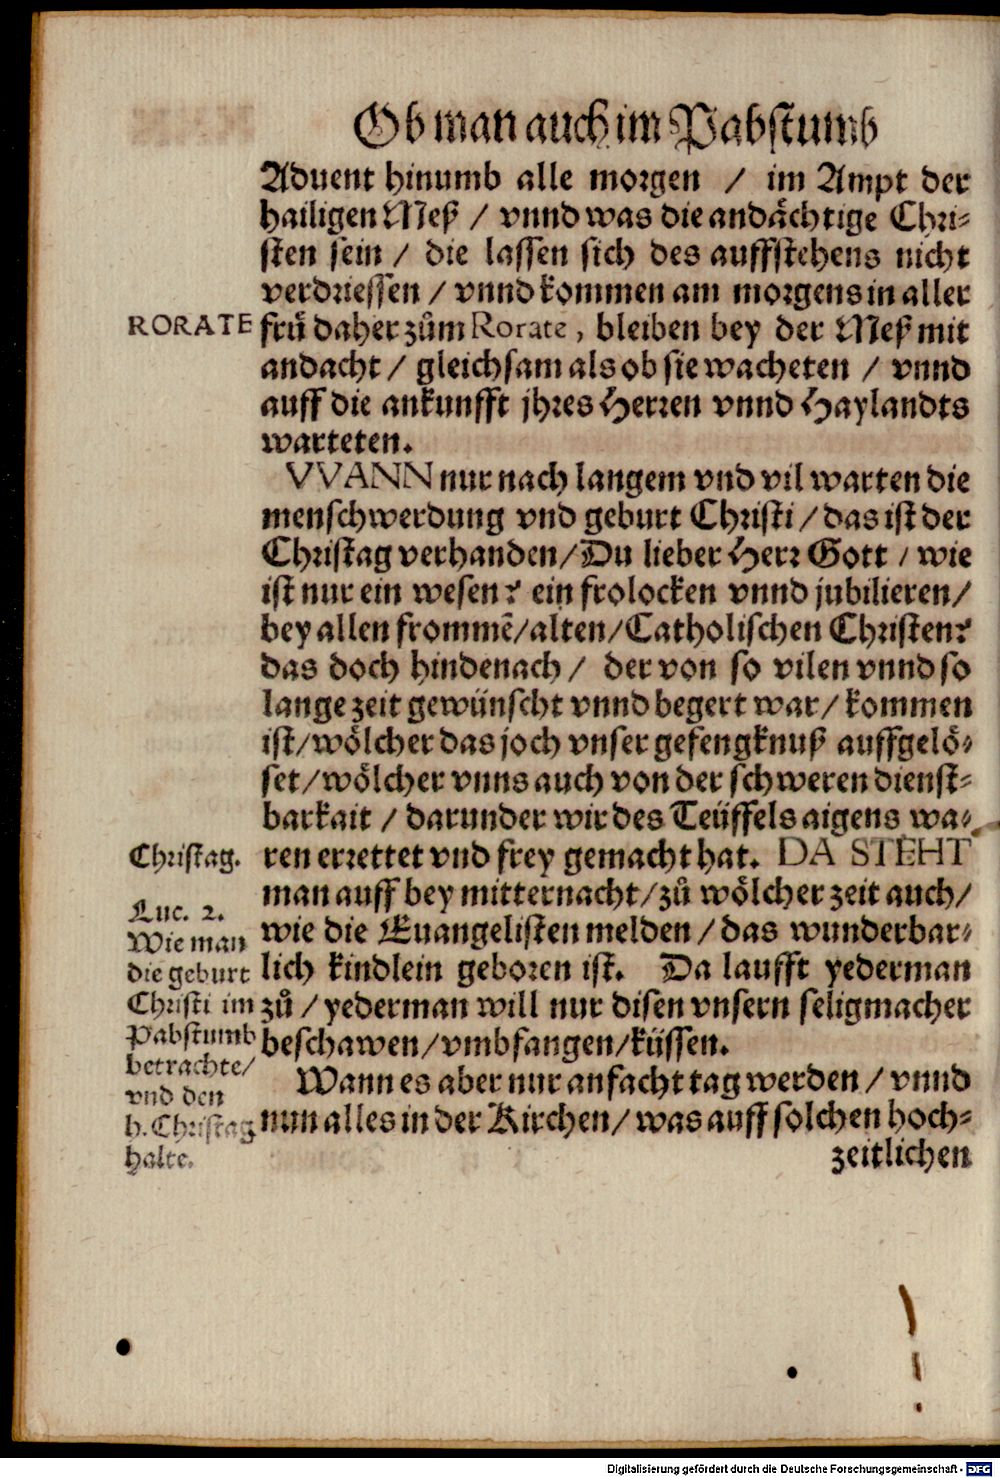 Ob man auch im Pabstumb
Aduent hinumb alle morgen / im Ampt der
hailigen Meß / vnnd was die andächtige Chri-
sten sein / die lassen sich des auffstehens nicht
verdriessen / vnnd kommen am morgens in aller
RORATE
frů daher zům Rorate, bleiben bey der Meß mit
andacht / gleichsam als ob sie wacheten / vnnd
auff die ankunfft jhres Herren vnnd Haylandts
warteten.
VVANN nur nach langem vnd vil warten die
menschwerdung vnd geburt Christi / das ist der
Christag verhanden / Du lieber Herr Gott / wie
ist nur ein wesen? ein frolocken vnnd jubilieren /
bey allen frommẽ / alten / Catholischen Christen?
das doch hindenach / der von so vilen vnnd so
lange zeit gewünscht vnnd begert war / kommen
ist / wölcher das joch vnser gefengknuß auffgelö-
set / wölcher vnns auch von der schweren dienst-
barkait / darunder wir des Teüffels aigens wa-
Christag.
ren errettet vnd frey gemacht hat. DA STEHT
man auff bey mitternacht / zů wölcher zeit auch /
wie die Euangelisten melden / das wunderbar-
lich kindlein geboren ist. Da laufft yederman
zů / yederman will nur disen vnsern seligmacher
beschawen / vmbfangen / küssen.
Luc. 2.
Wie man
die geburt
Christi im
Pabstumb
betrachte /
vnd den
h. Christag
halte.
Wann es aber nur anfacht tag werden / vnnd
nun alles in der Kirchen / was auff solchen hoch-
zeitlichen
Digitalisierung gefördert durch die Deutsche Forschungsgemeinschaft - DFG